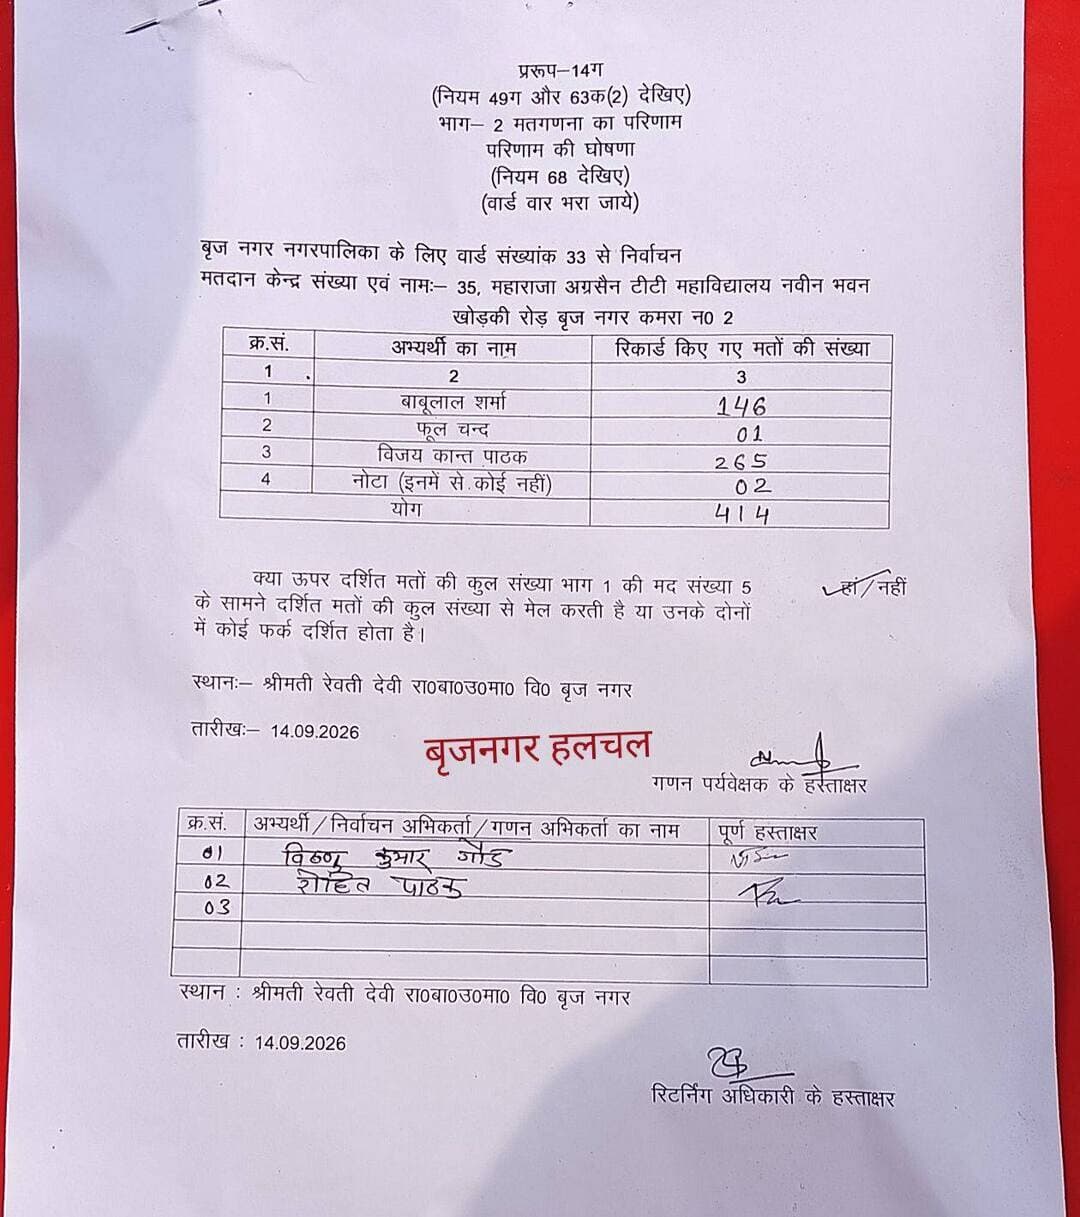 प्ररूप–14ग
(नियम 49ग और 63क(2) देखिए)
भाग– 2 मतगणना का परिणाम
परिणाम की घोषणा
(नियम 68 देखिए)
(वार्ड वार भरा जाये)
बृज नगर नगरपालिका के लिए वार्ड संख्यांक 33 से निर्वाचन
मतदान केन्द्र संख्या एवं नामः– 35, महाराजा अग्रसैन टीटी महाविद्यालय नवीन भवन
खोड़की रोड़ बृज नगर कमरा न0 2
क्र.सं. अभ्यर्थी का नाम रिकार्ड किए गए मतों की संख्या
1 2 3
1 बाबूलाल शर्मा 146
2 फूल चन्द 01
3 विजय कान्त पाठक 265
4 नोटा (इनमें से कोई नहीं) 02
योग 414
क्या ऊपर दर्शित मतों की कुल संख्या भाग 1 की मद संख्या 5 हां/नहीं
के सामने दर्शित मतों की कुल संख्या से मेल करती है या उनके दोनों
में कोई फर्क दर्शित होता है।
स्थानः– श्रीमती रेवती देवी रा0बा0उ0मा0 वि0 बृज नगर
तारीखः– 14.09.2026
बृजनगर हलचल
गणन पर्यवेक्षक के हस्ताक्षर
क्र.सं. अभ्यर्थी/निर्वाचन अभिकर्ता/गणन अभिकर्ता का नाम पूर्ण हस्ताक्षर
01 विष्णु कुमार गौड
02 रोहित पाठक
03
स्थान : श्रीमती रेवती देवी रा0बा0उ0मा0 वि0 बृज नगर
तारीख : 14.09.2026
रिटर्निग अधिकारी के हस्ताक्षर